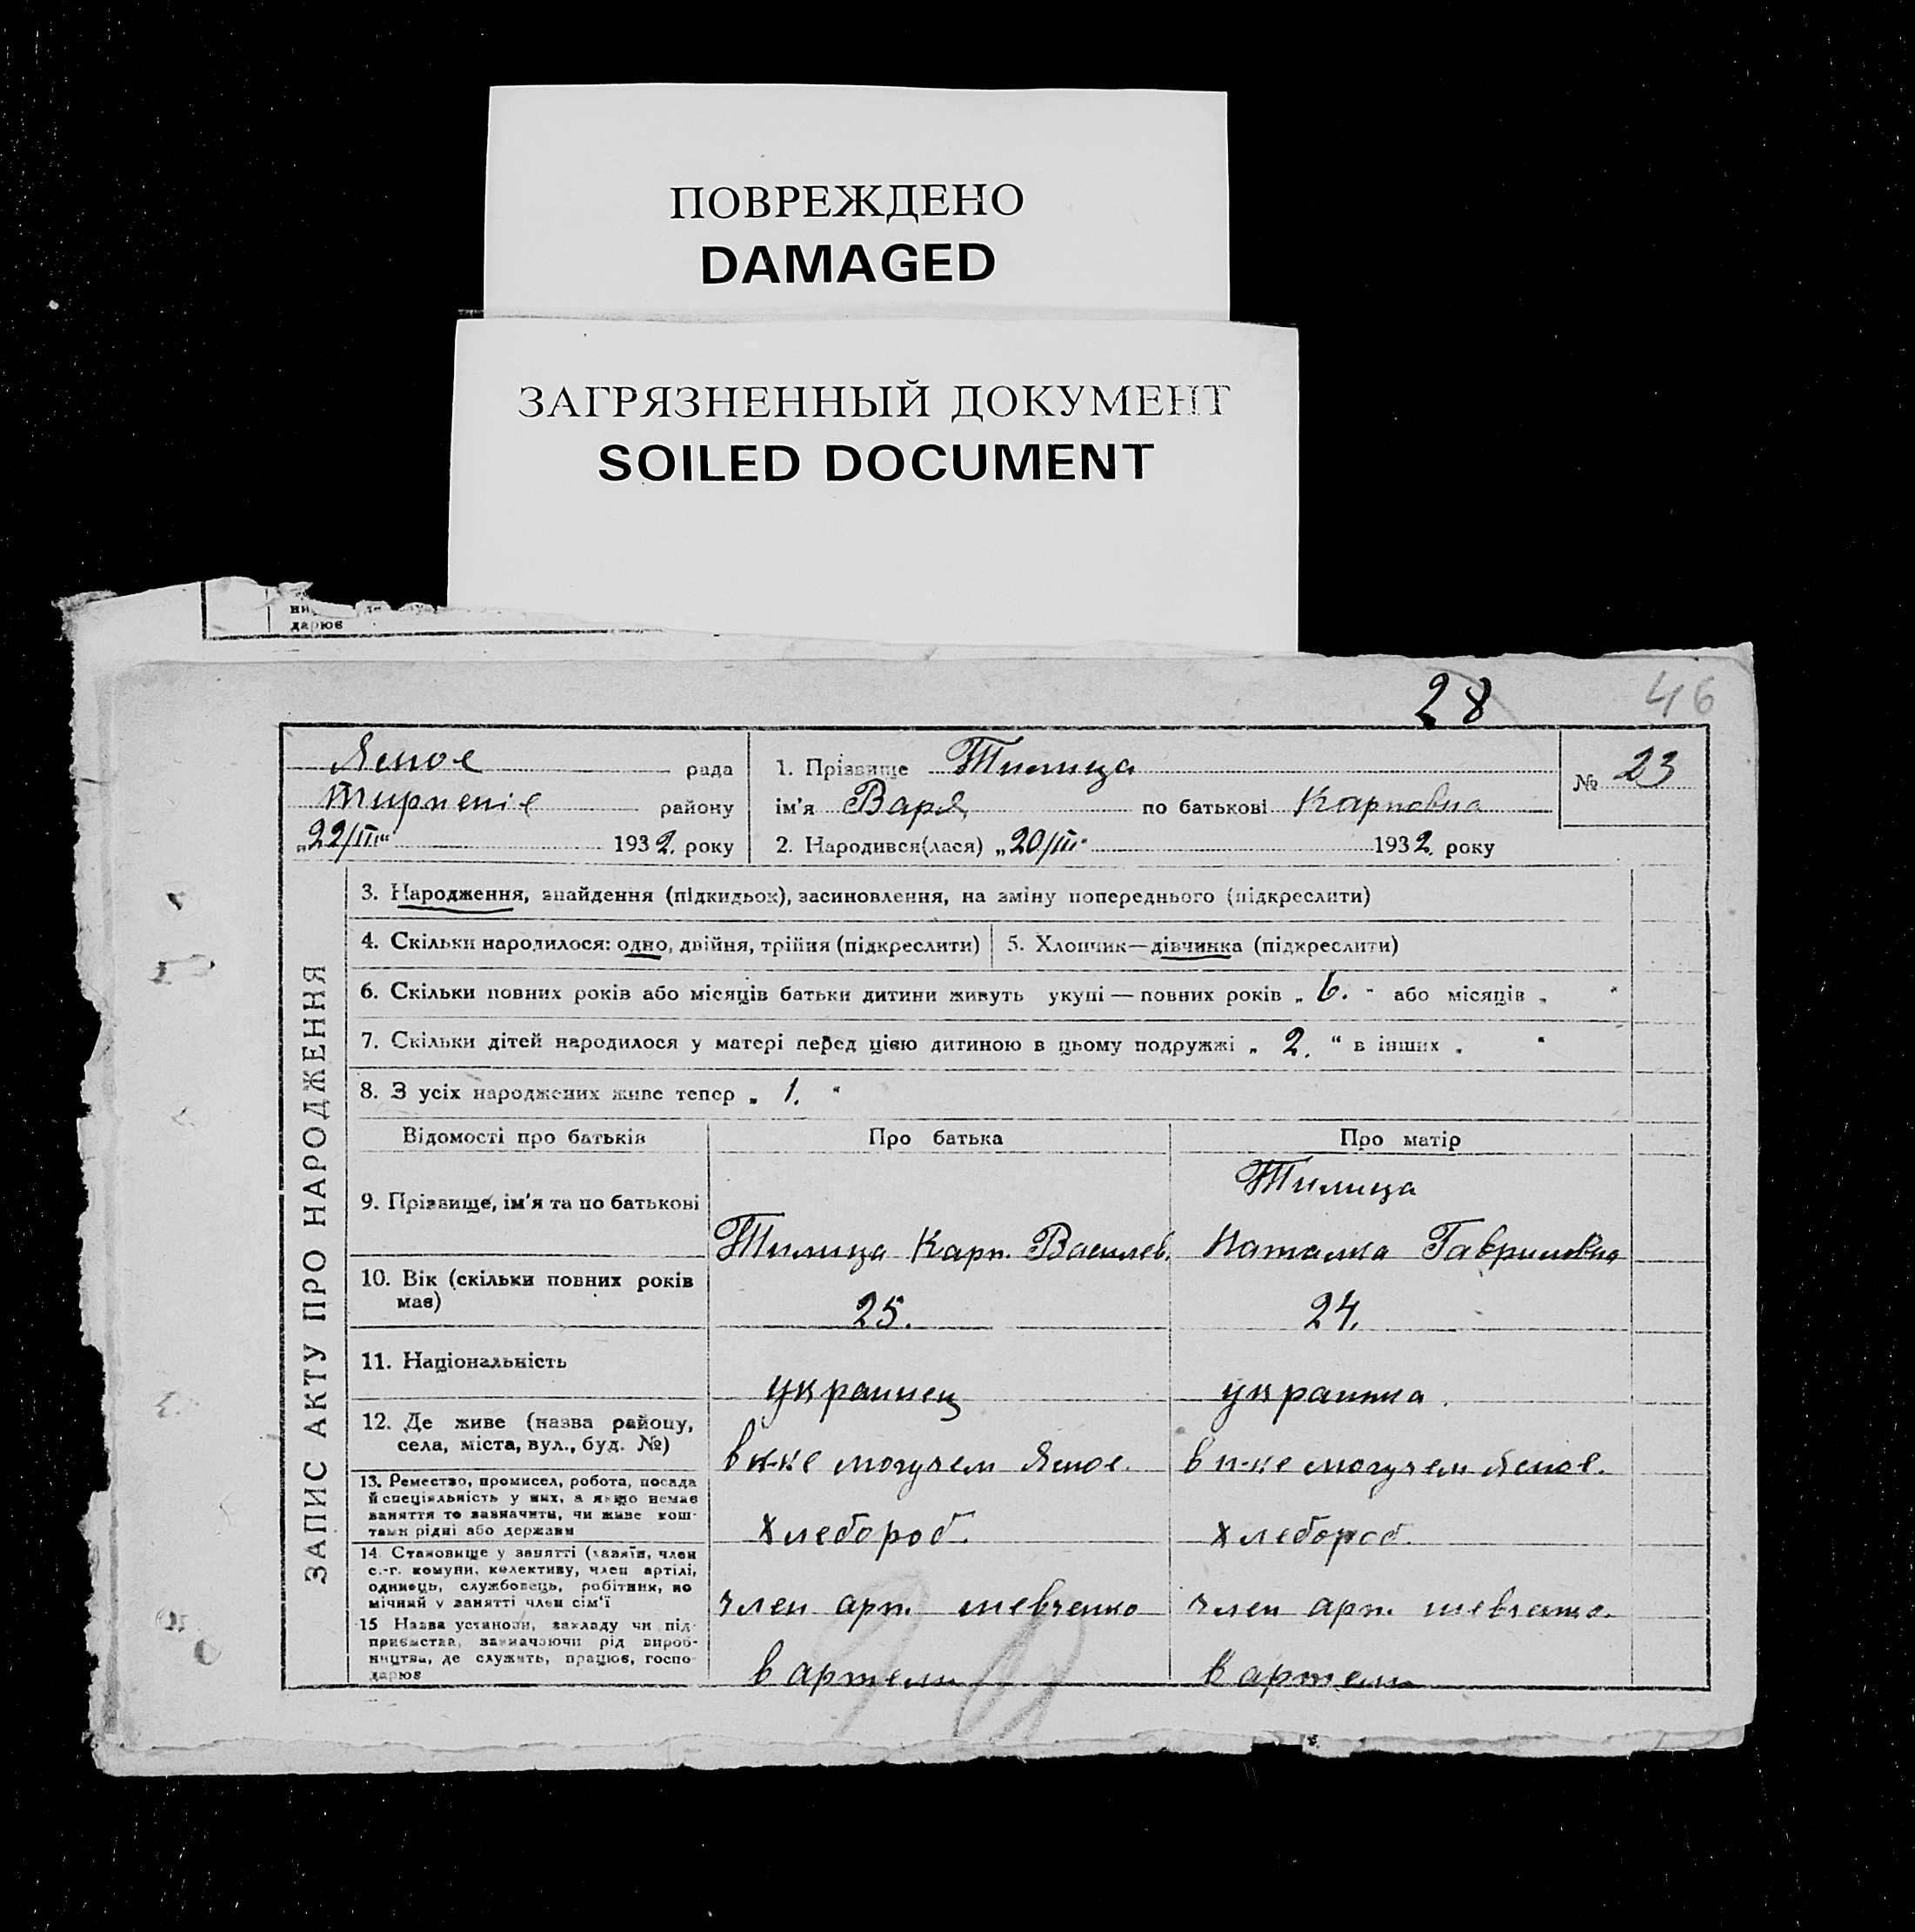 ПОВРЕЖДЕНО
DAMAGED
ЗАГРЯЗНЕННЫЙ ДОКУМЕНТ
SOILED DOCUMENT
дарює
28 46
рада
району
„22/III“ 1932. року
1. Прізвище Тилица
ім'я Варя по батькові Карповна
2. Народився(лася) „20/III“ 1932. року
№ 23
ЗАПИС АКТУ ПРО НАРОДЖЕННЯ
3. Народження, знайдення (підкидьок), засиновлення, на зміну попереднього (підкреслити)
4. Скільки народилося: одно, двійня, трійня (підкреслити) 5. Хлопчик—дівчинка (підкреслити)
6. Скільки повних років або місяців батьки дитини живуть укупі — повних років „ 6. “ або місяців „ “
7. Скільки дітей народилося у матері перед цією дитиною в цьому подружжі „ 2. “ в інших „ “
8. З усіх народжених живе тепер „ 1. “
Відомості про батьків Про батька Про матір
9. Прізвище, ім'я та по батькові Тилица Карп. Василев. Тилица Наталка Гавриловна
10. Вік (скільки повних років
має) 25. 24.
11. Національність украинец украинка.
12. Де живе (назва району,
села, міста, вул., буд. №)
13. Ремество, промисел, робота, посада
й спеціяльність у них, а якщо немає
заняття то зазначити, чи живе кош-
тами рідні або держави хлебороб. хлебороб.
14. Становище у занятті (хазяїн, член
с.-г. комуни, колективу, член артілі,
одинець, службовець, робітник, по
мічний у занятті член сім'ї член арт. шевченко член арт. шевченко.
15 Назва установи, закладу чи під-
приємства, зазначаючи рід вироб-
ництва, де служить, працює, госпо-
дарює в артели в артели